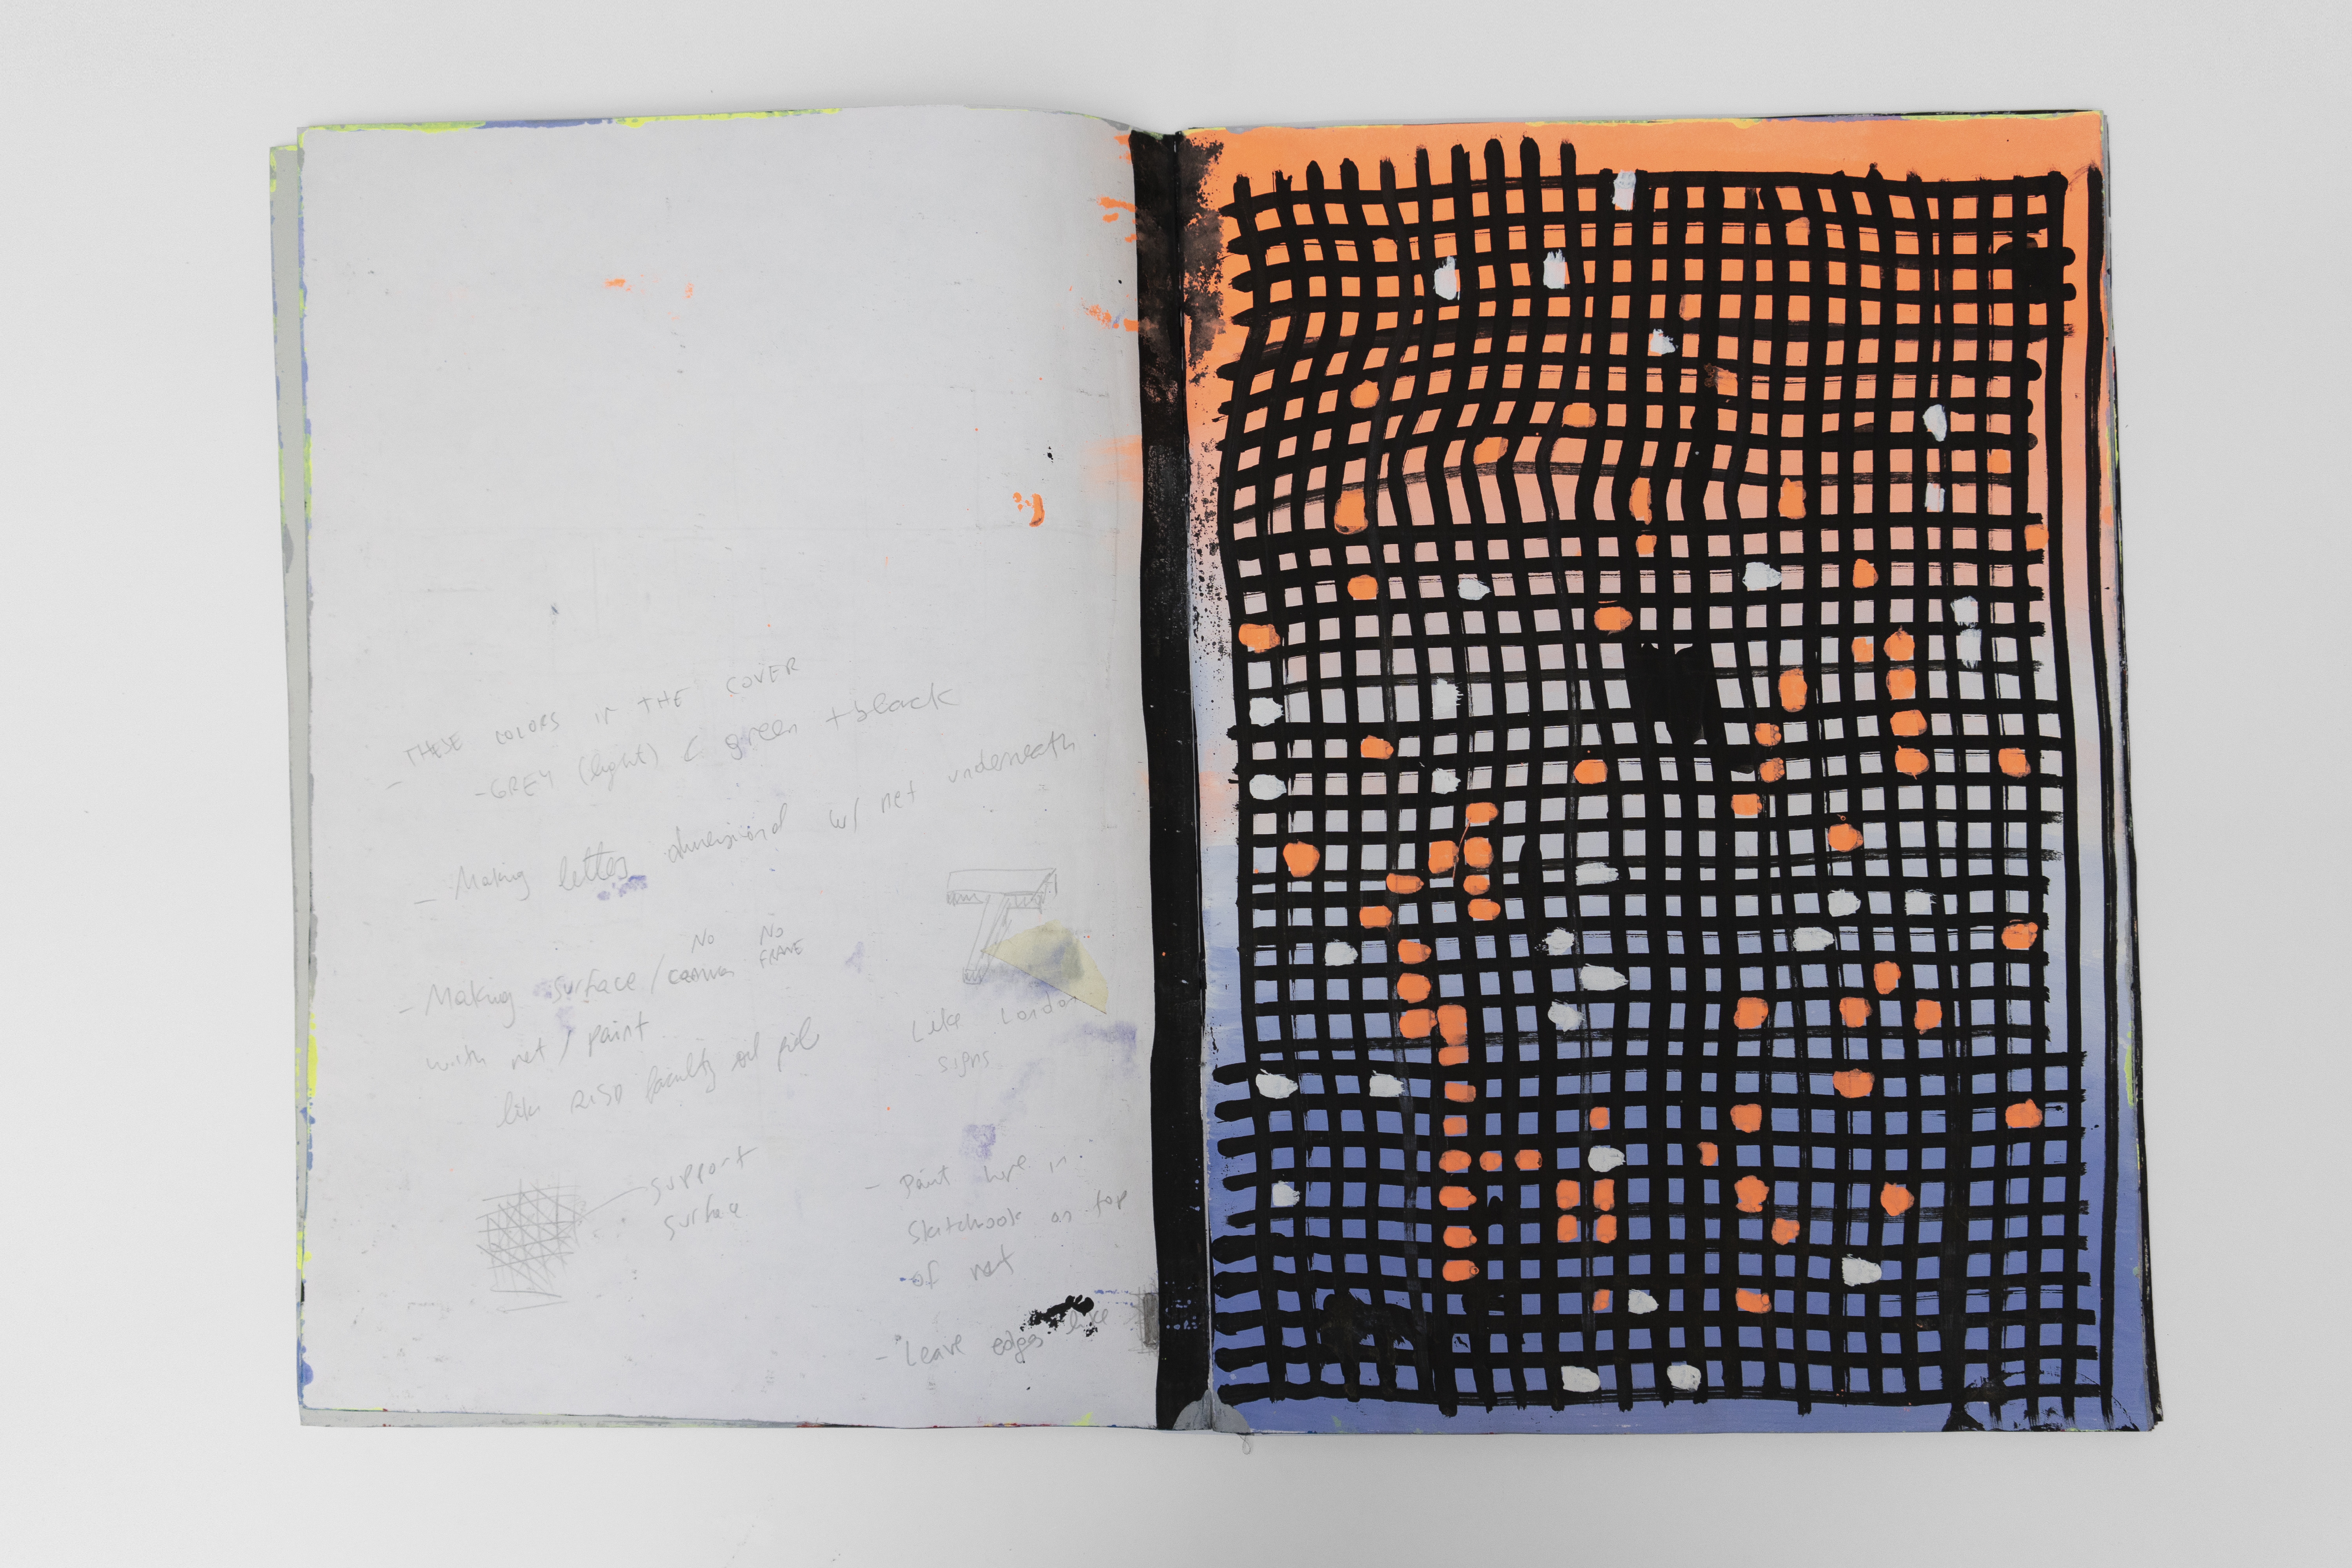 - THESE COLORS IN THE COVER
- GREY (light) & green + black
- Making letters dimensional w/ net underneath
No No
- Making surface / FRAME
with net / paint
like RISD faculty oil
support
surface
Like London
signs
- Paint here in
sketchbook on top
of net
- Leave edges like